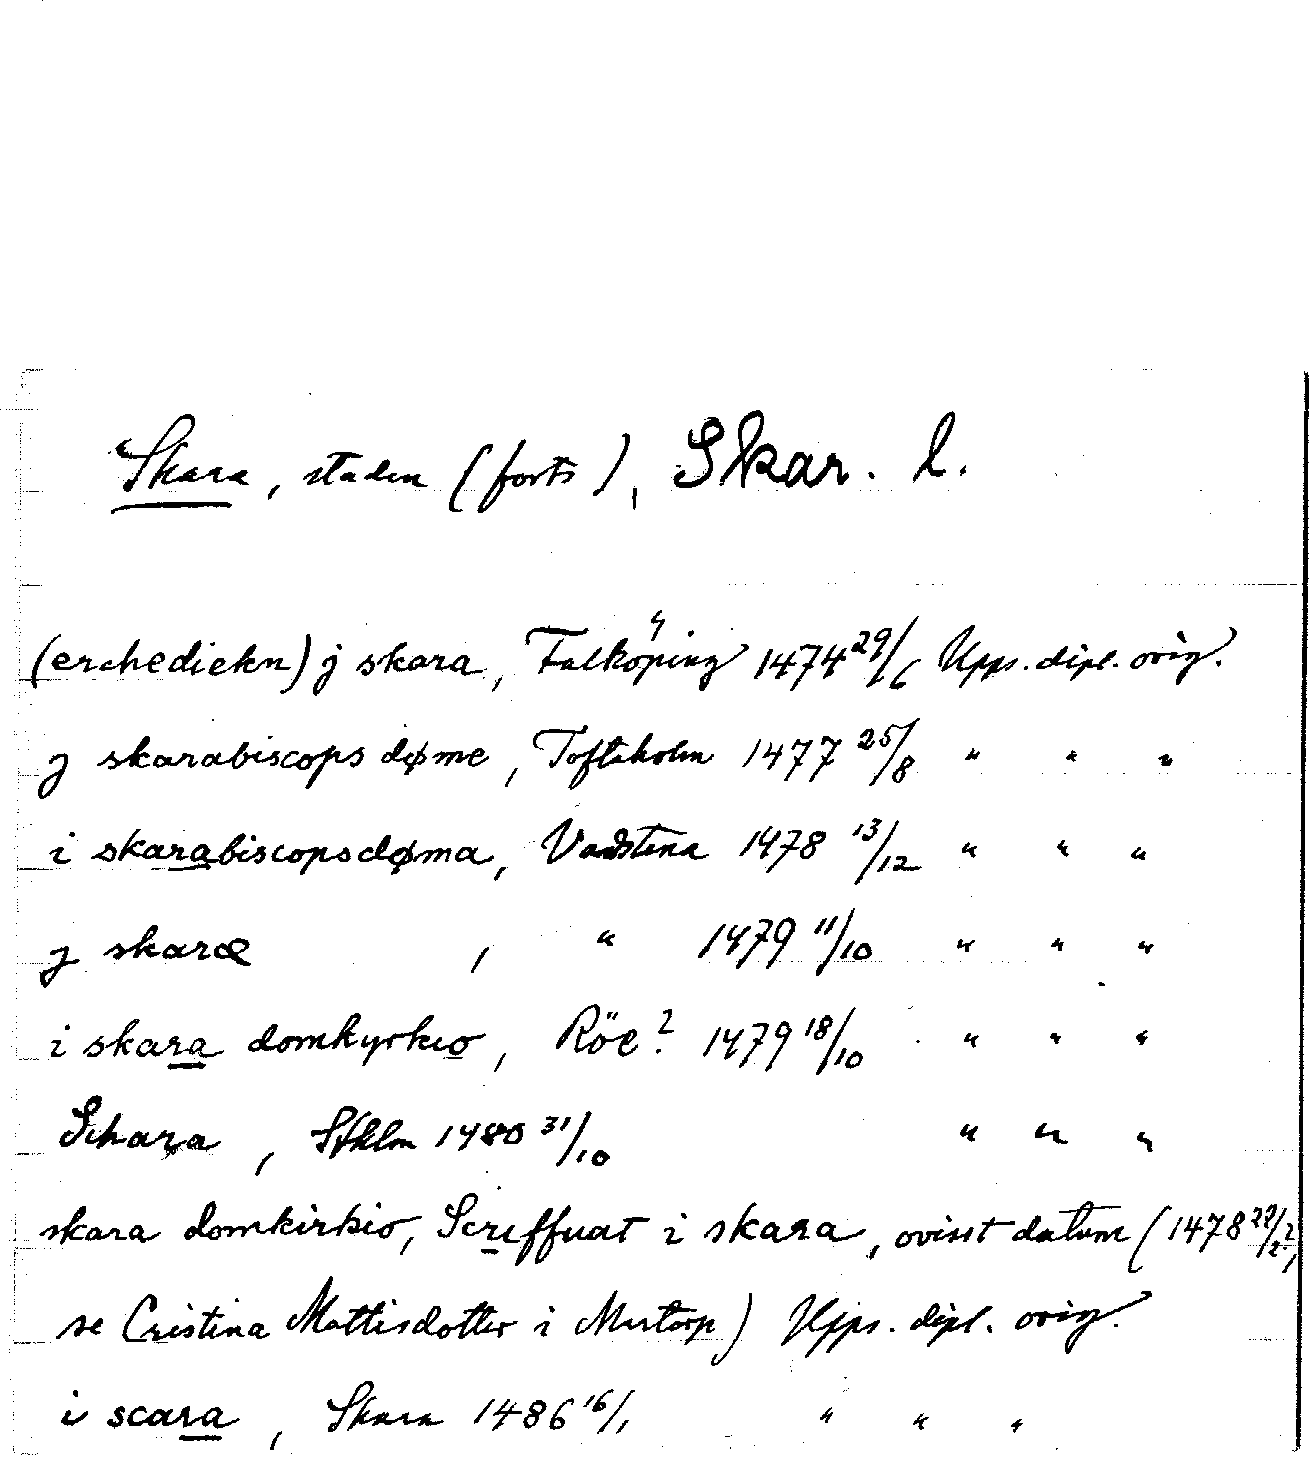 Skara, staden (forts), Skar. l.
(erchediekn) j skara, Falköping 1474 29/6 Upps. dipl. orig.
j skarabiscops døme, Toftaholm 1477 25/8 " " "
i skarabiscopsdøma, Vadstena 1478 13/12 " " "
j skaræ , " 1479 11/10 " " "
i skara domkyrkio, Röe? 1479 18/10 " " "
Schara, Sthlm 1480 31/10 " " "
skara domkirkio, Scriffuat i skara, ovisst datum (1478
se Cristina Mattisdotter i) Upps. dipl. orig.
i scara, Skara 1486 16/1 " " "